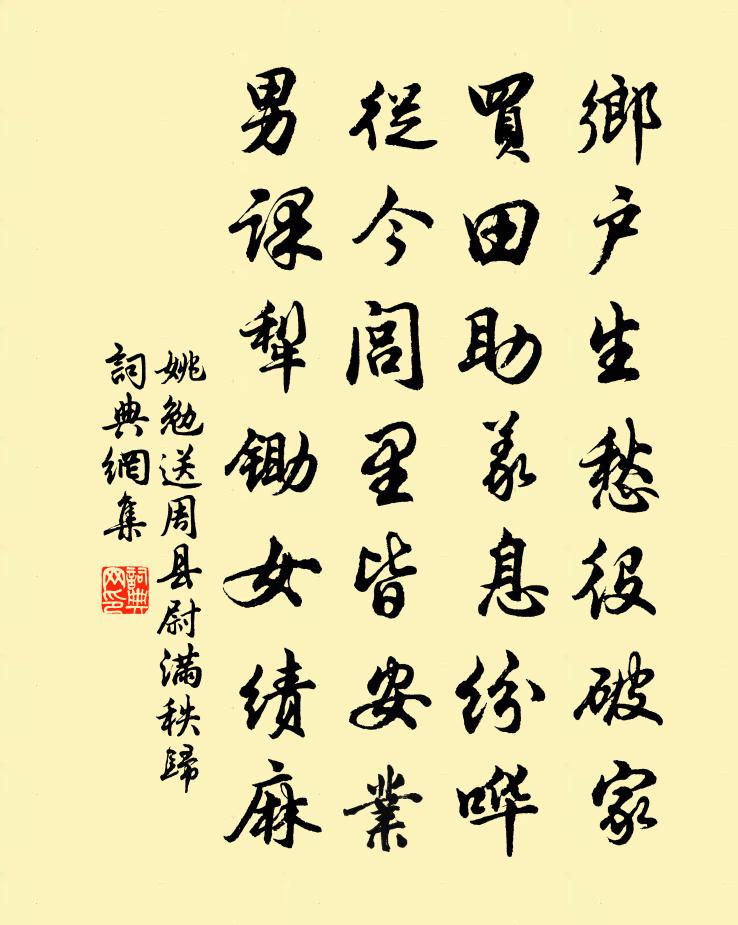 鄉户生愁役破家
買田助義息纷哗
從今閭里皆安業
男課犁鋤女績麻
姚勉送周县尉满秩歸
詞典網集
詞典網印